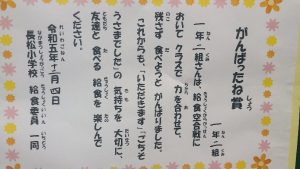 がんばったね賞
しょう
一年二組
ねん
くみ
一年二組さんは、給食空合戦に
おいて クラスで 力を合わせて、
残さず 食べようと がんばりました。
これからも、「いただきます」「ごちそ
うさまでした」の 気持ちを 大切に、
友達と 食べる 給食を 楽しんで
ください。
令和五年十二月四日
長松小学校 給食委員一同